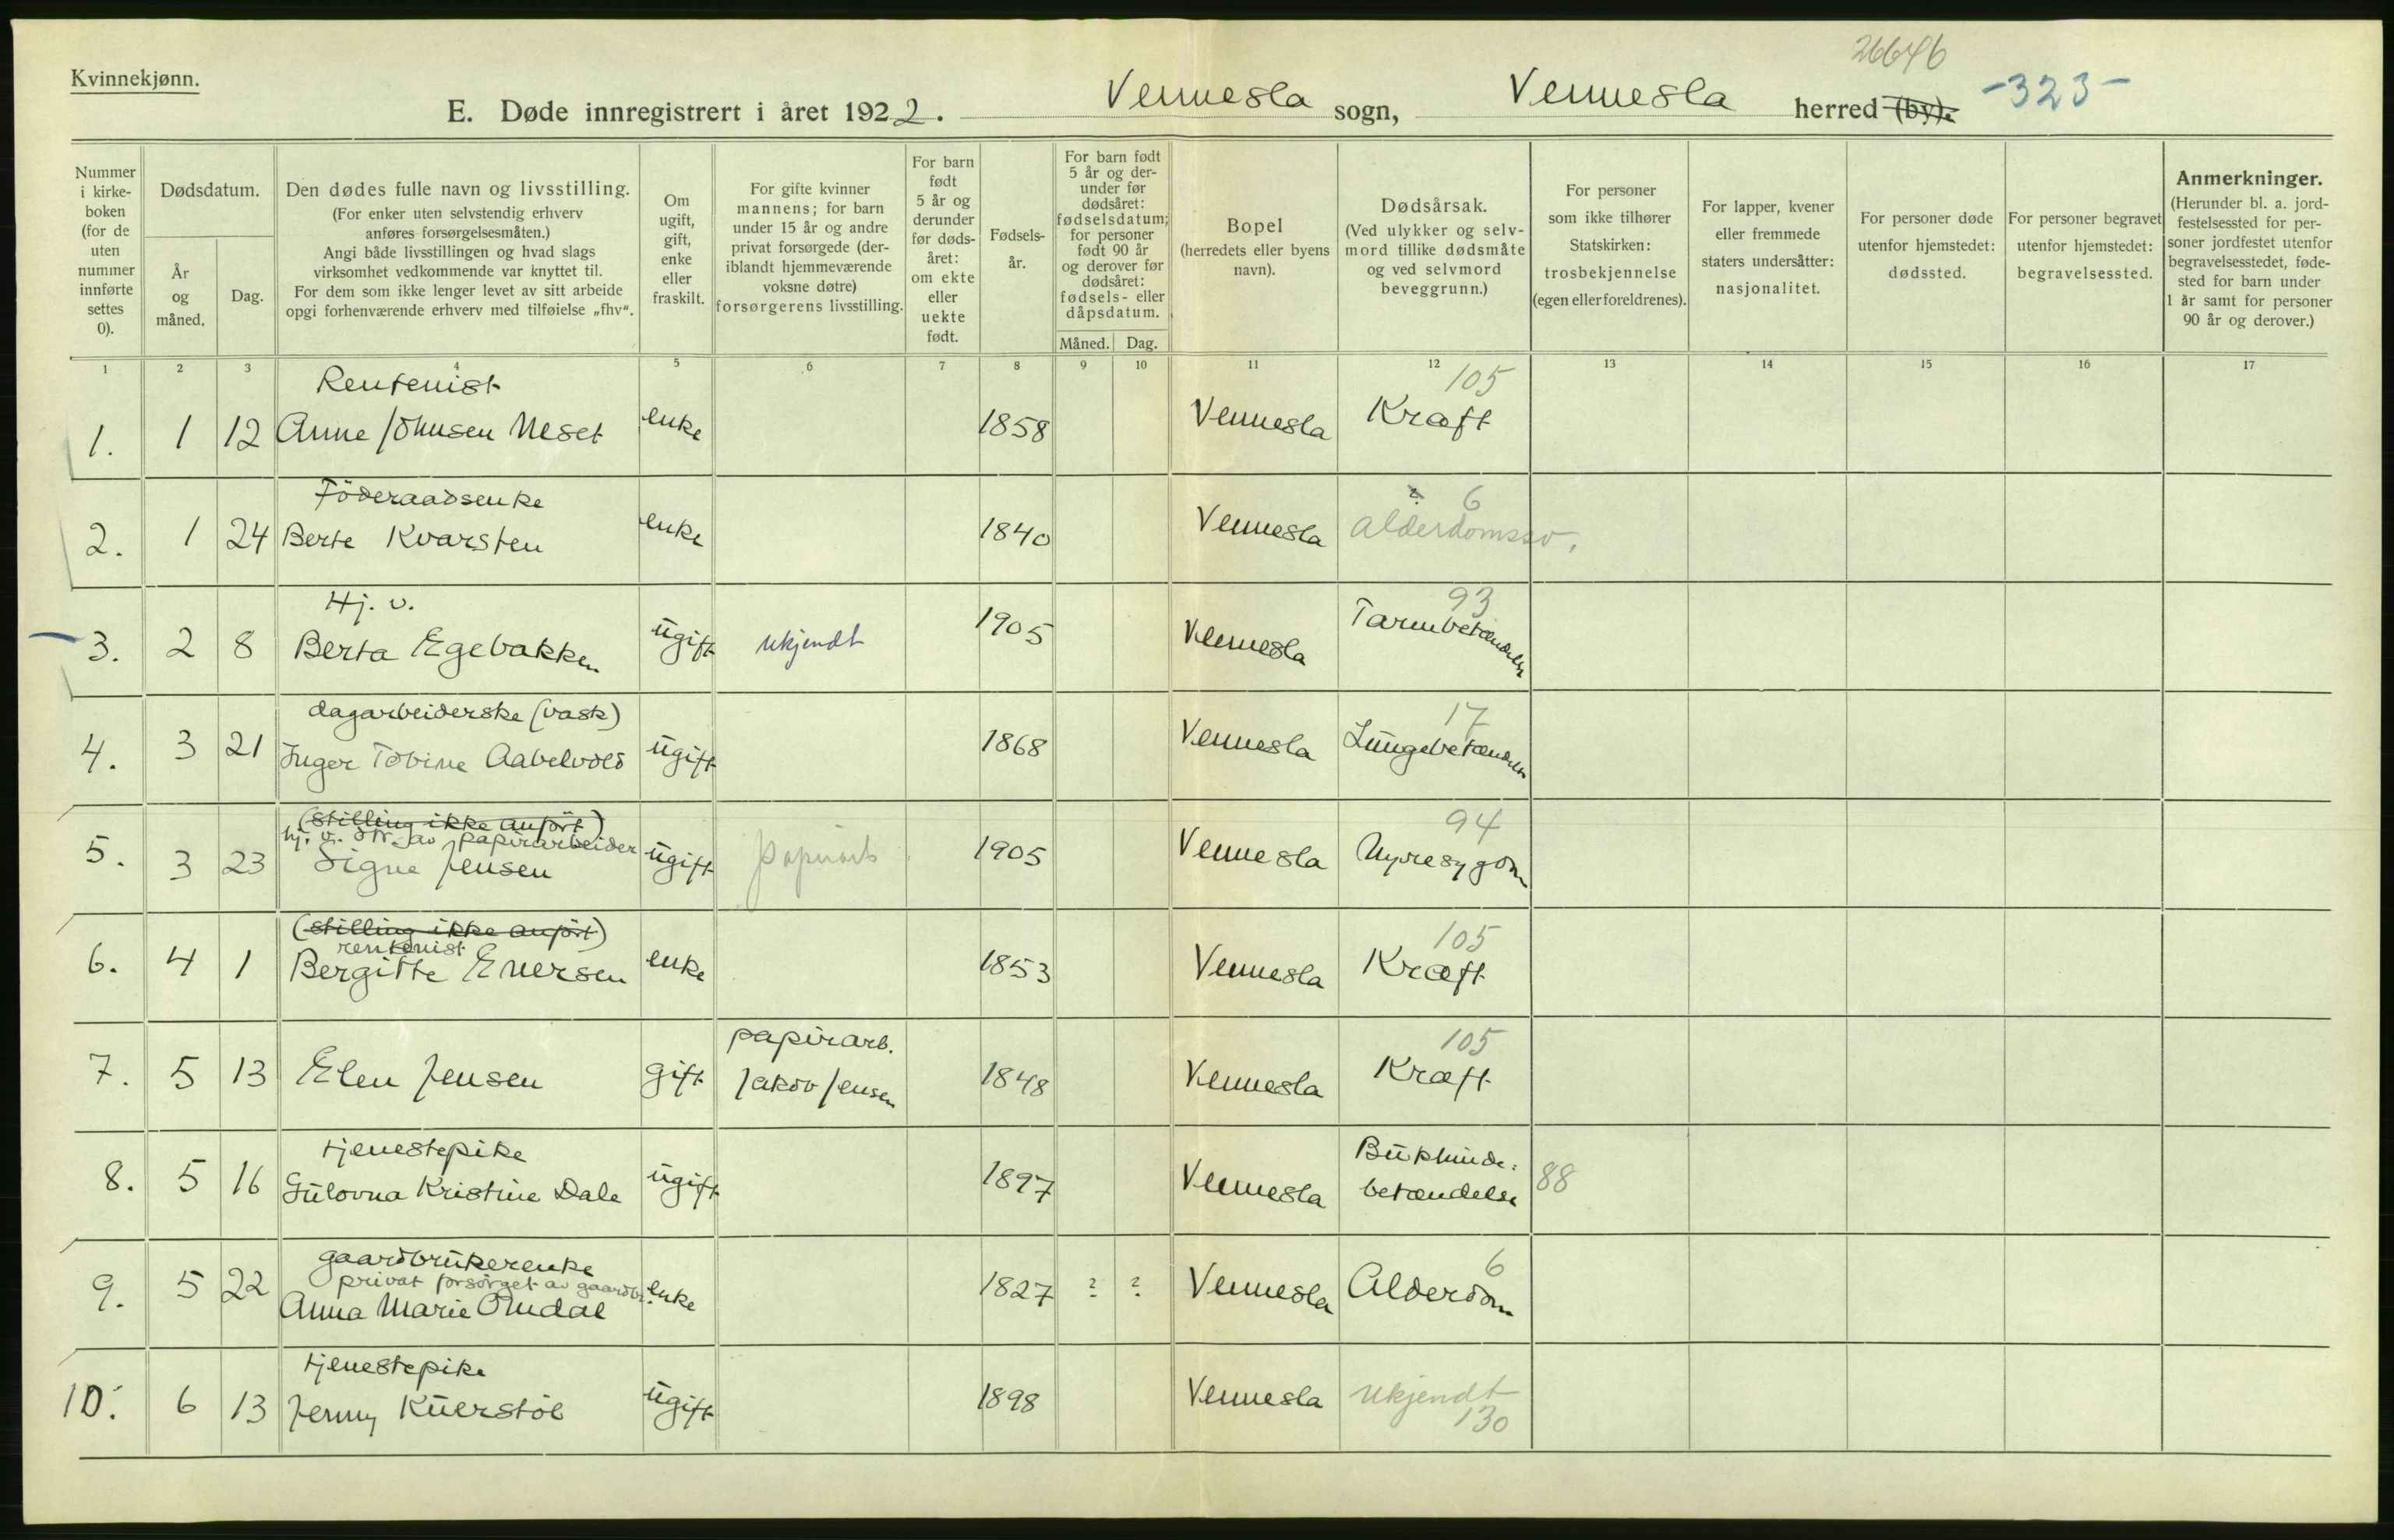 26646
Kvinnekjønn.
E. Døde innregistrert i året 1922. Vennesla sogn, Vennesla herred (by). -323-
Nummer i kirke-boken (for de uten nummer innførte settes 0).
Dødsdatum.
År og måned.
Dag.
Den dødes fulle navn og livsstilling.
(For enker uten selvstendig erhverv
anføres forsørgelsesmåten.)
Angi både livsstillingen og hvad slags
virksomhet vedkommende var knyttet til.
For dem som ikke lenger levet av sitt arbeide
opgi forhenværende erhverv med tilføielse „fhv“.
Om ugift, gift, enke eller fraskilt.
For gifte kvinner
mannens; for barn
under 15 år og andre
privat forsørgede (der-
iblandt hjemmeværende
voksne døtre)
forsørgerens livsstilling.
For barn født 5 år og derunder før døds-året: om ekte eller uekte født.
Fødsels-år.
For barn født
5 år og der-
under før
dødsåret:
fødselsdatum;
for personer
født 90 år
og derover før
dødsåret:
fødsels- eller
dåpsdatum.
Måned. Dag.
Bopel
(herredets eller byens
navn).
Dødsårsak.
(Ved ulykker og selv-
mord tillike dødsmåte
og ved selvmord
beveggrunn.)
For personer
som ikke tilhører
Statskirken:
trosbekjennelse
(egen eller foreldrenes).
For lapper, kvener
eller fremmede
staters undersåtter:
nasjonalitet.
For personer døde
utenfor hjemstedet:
dødssted.
For personer begravet
utenfor hjemstedet:
begravelsessted.
Anmerkninger.
(Herunder bl. a. jord-
festelsessted for per-
soner jordfestet utenfor
begravelsesstedet, føde-
sted for barn under
1 år samt for personer
90 år og derover.)
1 2 3 4 5 6 7 8 9 10 11 12 13 14 15 16 17
Rentenist 105
1. 1 12 Anne Johnsen Neset enke 1858 Vennesla Kræft
Föderaadsenke ? 6
2. 1 24 Berte Kvarsten enke 1840 Vennesla alderdomssv.
Hj. v. 93
3. 2 8 Berta Egebakken ugift ukjendt 1905 Vennesla Tarmbetændelse
dagarbeiderske (vask) 17
4. 3 21 Inger Tobine Aabelvold ugift 1868 Vennesla Lungebetændelse
(stilling ikke anfört) 94
hj. v. dtr. av papirarbeider
5. 3 23 Signe Jensen ugift papirarb 1905 Vennesla Nyresygdom
(stilling ikke anfört) 105
rentenist
6. 4 1 Bergitte Evensen enke 1853 Vennesla Kræft
papirarb. 105
7. 5 13 Elen Jensen gift Jakob Jensen 1848 Vennesla Kræft
tjenestepike Bukhinde-
8. 5 16 Gulovna Kristine Dale ugift 1897 Vennesla betændelse 88
gaardbrukerenke 6
privat forsörget av gaardbr.
9. 5 22 Anna Marie Omdal enke 1827 ? ? Vennesla Alderdom
tjenestepike
10. 6 13 Jenny ugift 1898 Vennesla ukjendt
130